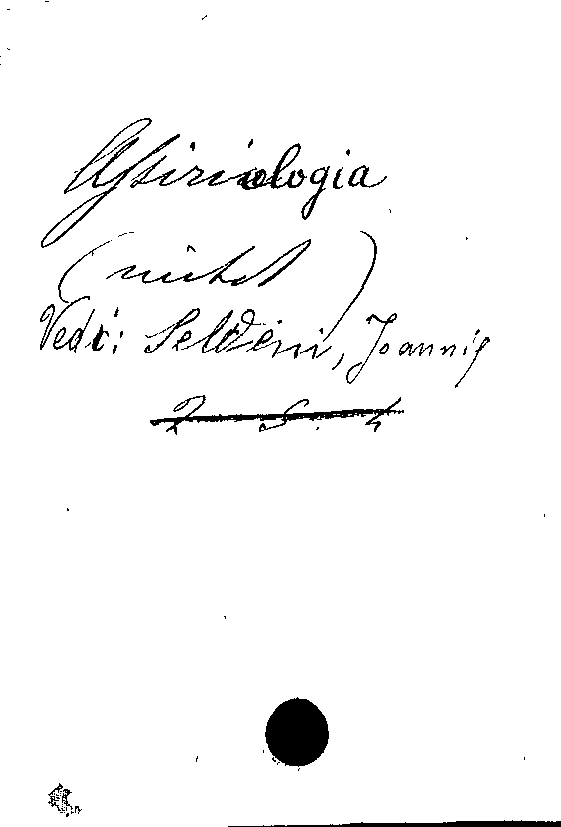 Assiriologia
( )
Vedi: Seldeni, Joannis
2. S. 4